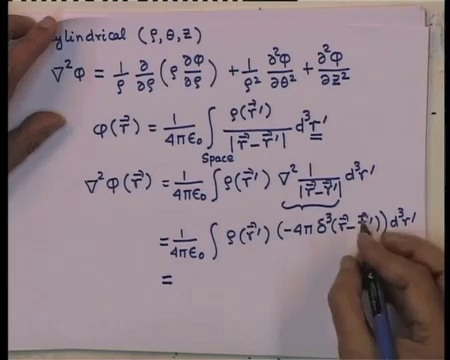 ylindrical (ρ, θ, z)
∇²φ = 1/ρ ∂/∂ρ (ρ ∂φ/∂ρ) + 1/ρ² ∂²φ/∂θ² + ∂²φ/∂z²
φ(r⃗) = 1/4πε₀ ∫ ρ(r⃗′)/|r⃗−r⃗′| d³r′
Space
∇²φ(r⃗) = 1/4πε₀ ∫ ρ(r⃗′) ∇² 1/|r⃗−r⃗′| d³r′
= 1/4πε₀ ∫ ρ(r⃗′) (−4π δ³(r⃗−r⃗′)) d³r′
=